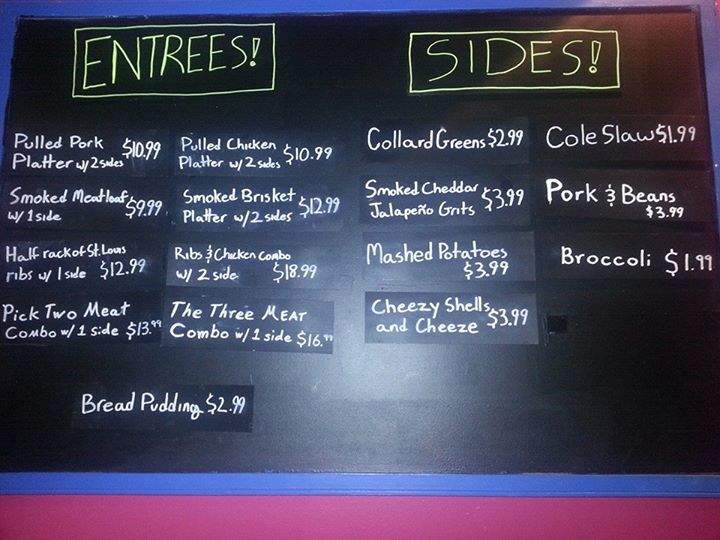 ENTREES!
Pulled Pork $10.99
Platter w/2 sides
Pulled Chicken $10.99
Platter w/2 sides
Smoked Meatloaf $9.99
w/ 1 side
Smoked Brisket $12.99
Platter w/2 sides
Half rack of St. Louis
ribs w/ 1 side $12.99
Ribs & Chicken Combo
w/ 2 side $18.99
Pick Two Meat
Combo w/ 1 side $13.99
The Three MEAT
Combo w/ 1 side $16.99
Bread Pudding $2.99
SIDES!
Collard Greens $2.99
Cole Slaw $1.99
Smoked Cheddar $3.99
Jalapeño Grits
Pork & Beans
$3.99
Mashed Potatoes
$3.99
Broccoli $1.99
Cheezy Shells $3.99
and Cheeze